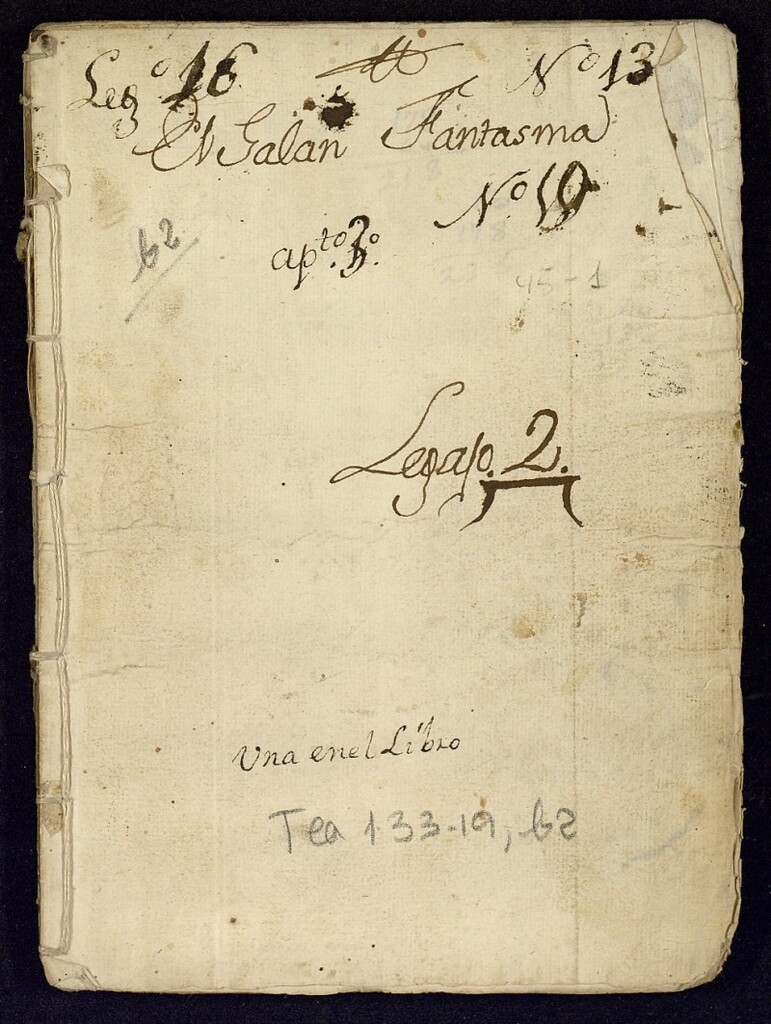 Legº 16 Nº 13
El Galan Fantasma
Nº 19
b2
apto. 3º.
45-1
Legajo. 2.
Una enel Libro
Tea 133-19, b2